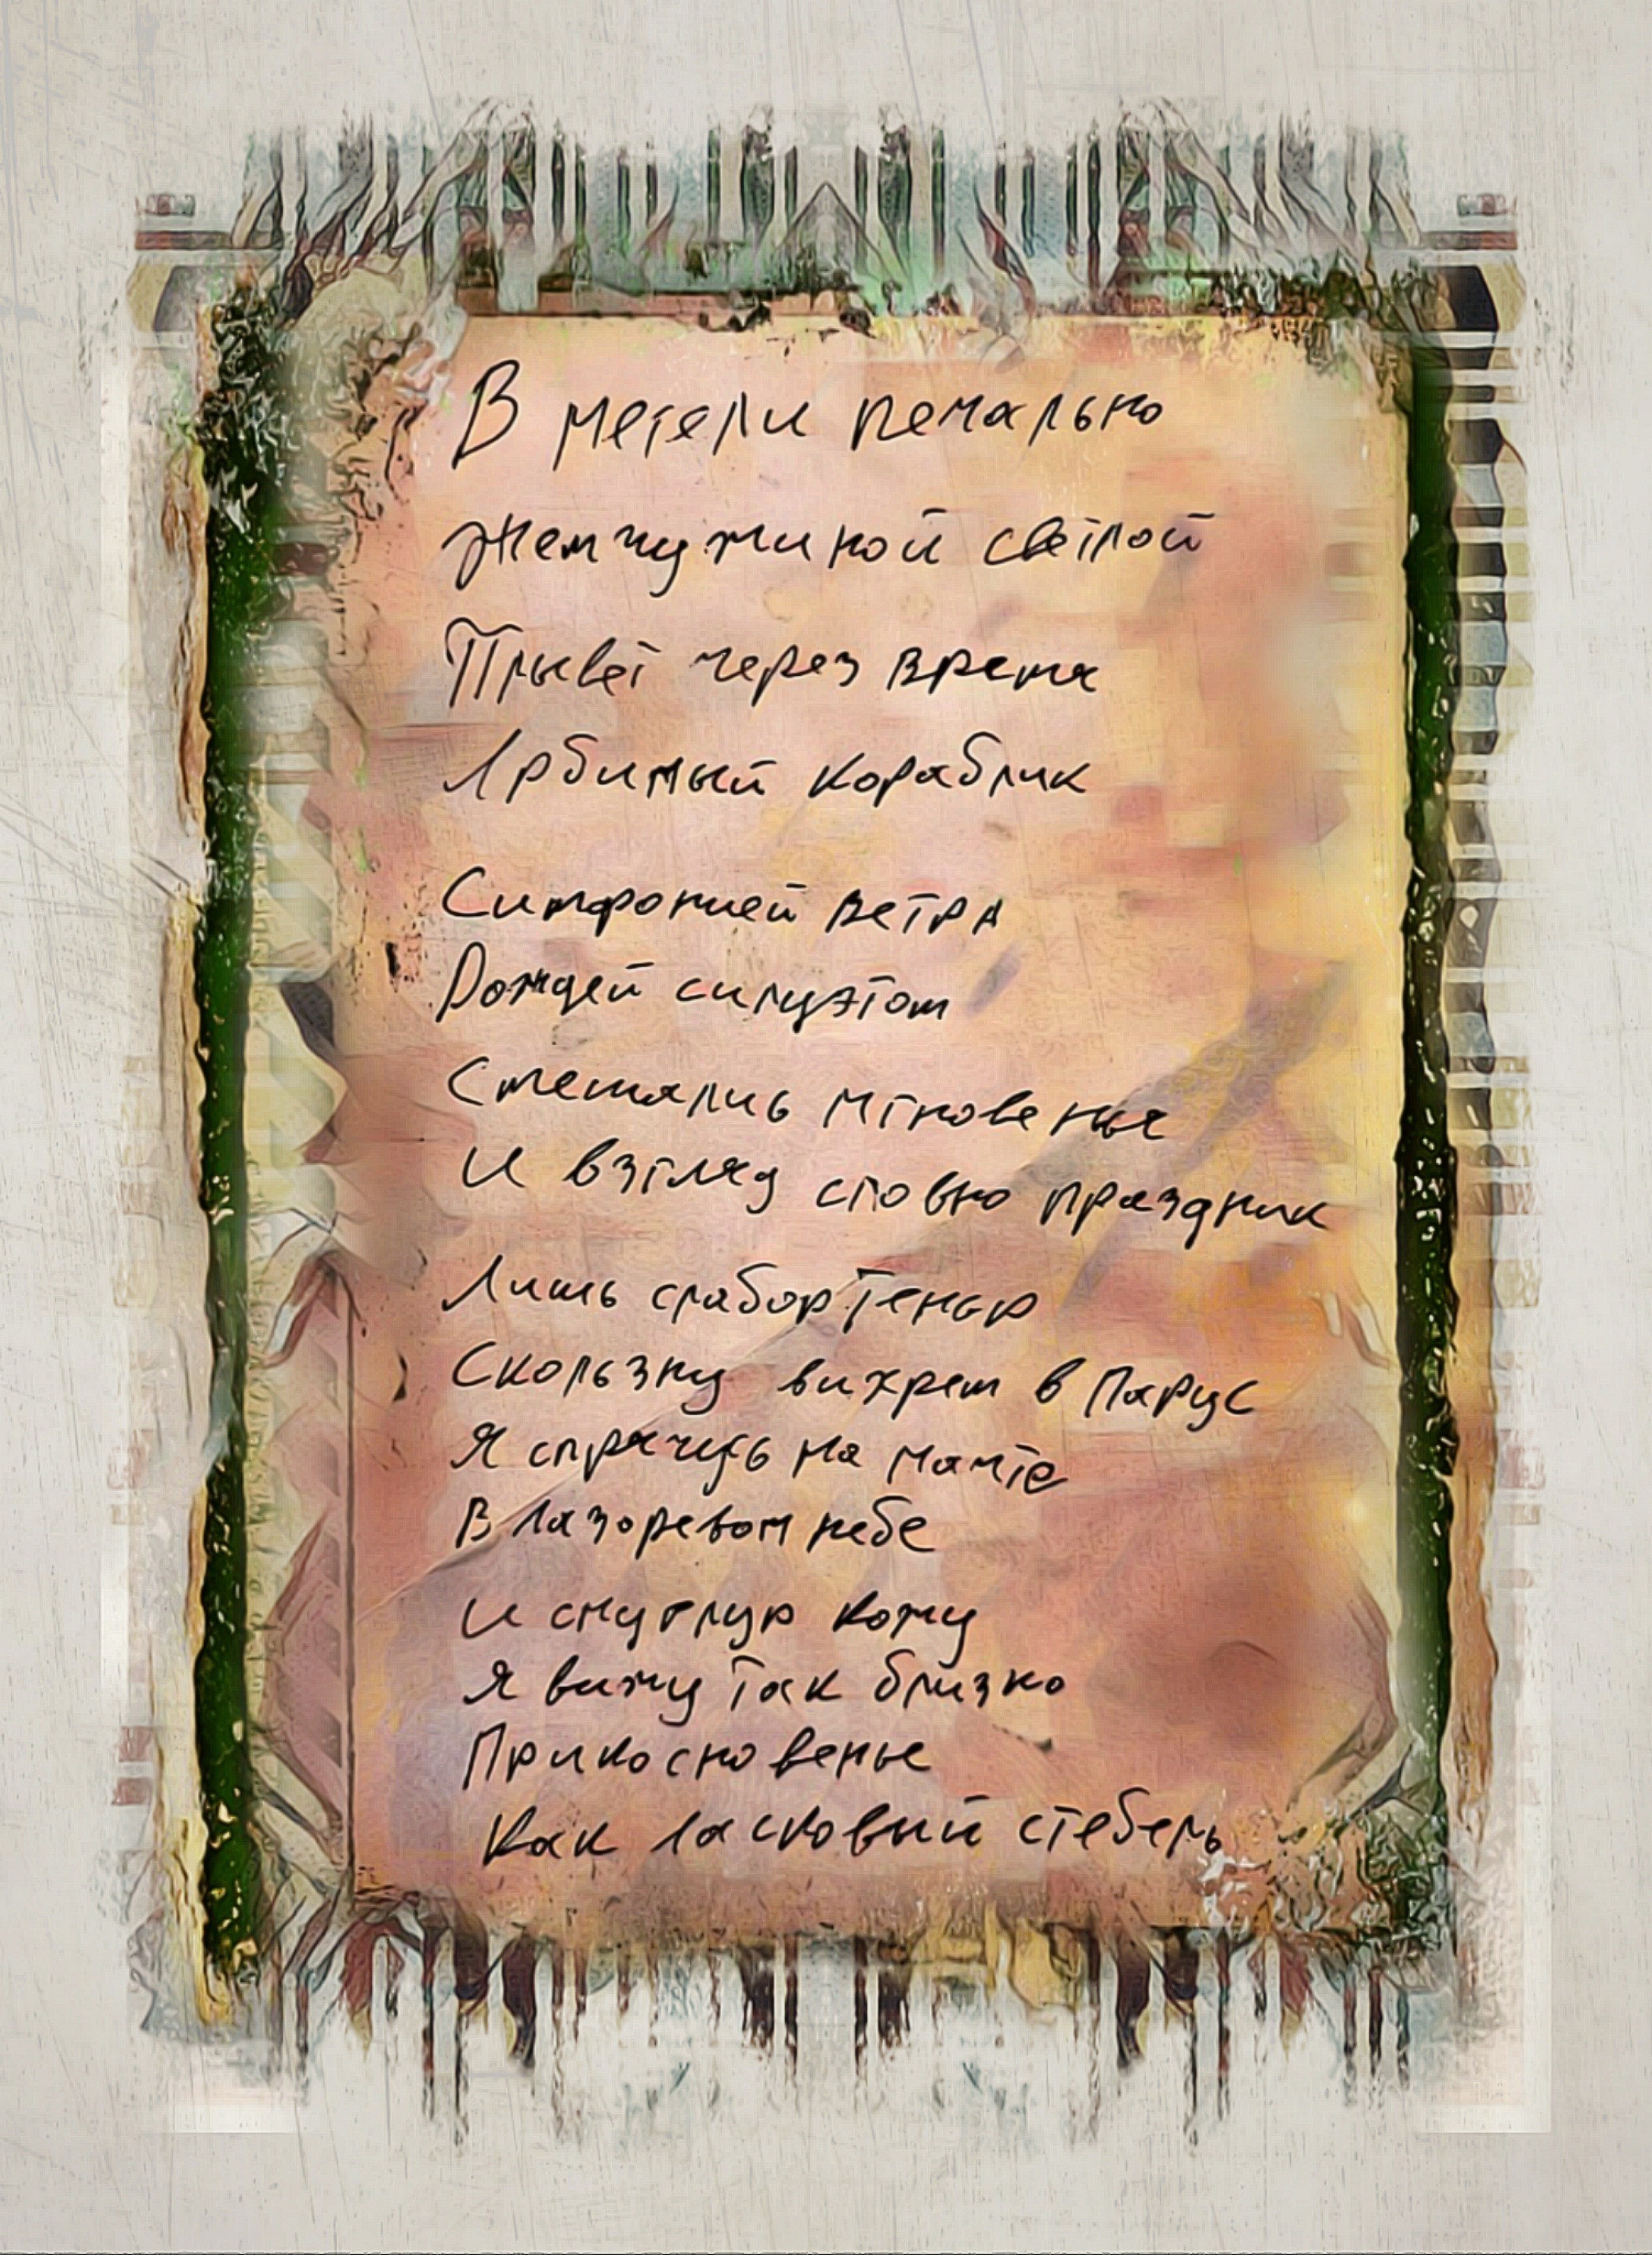 В метели печально
Жемчужиной светлой
Плывет через время
Любимый кораблик
Симфонией ветра
Дождей силуэтом
Смешались мгновенья
И взгляд словно праздник
Лишь слабою тенью
Скользну вихрем в Парус
Я спрячусь на мачте
В лазоревом небе
И смуглую кожу
Я вижу так близко
Прикосновенье
Как ласковый стебель